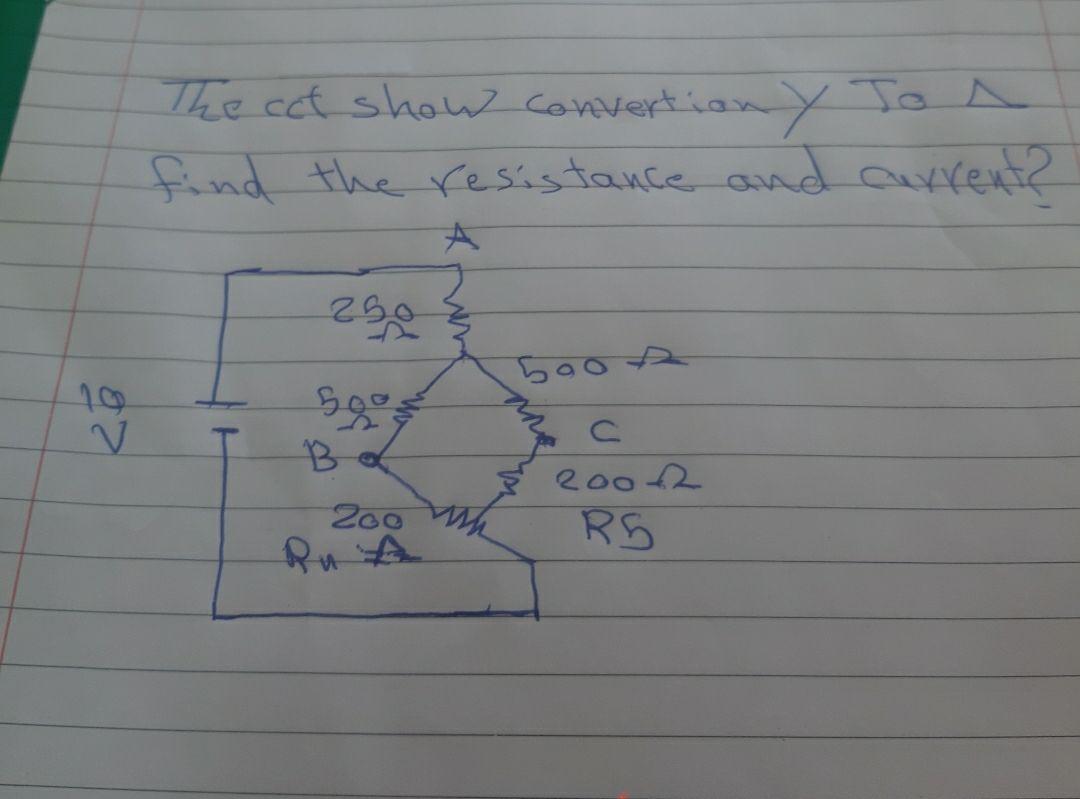 The cct show convertion Y To Δ
find the resistance and current?
A
250
Ω
500 Ω
10
V
500
Ω
B
C
200 Ω
200
R5
Ω